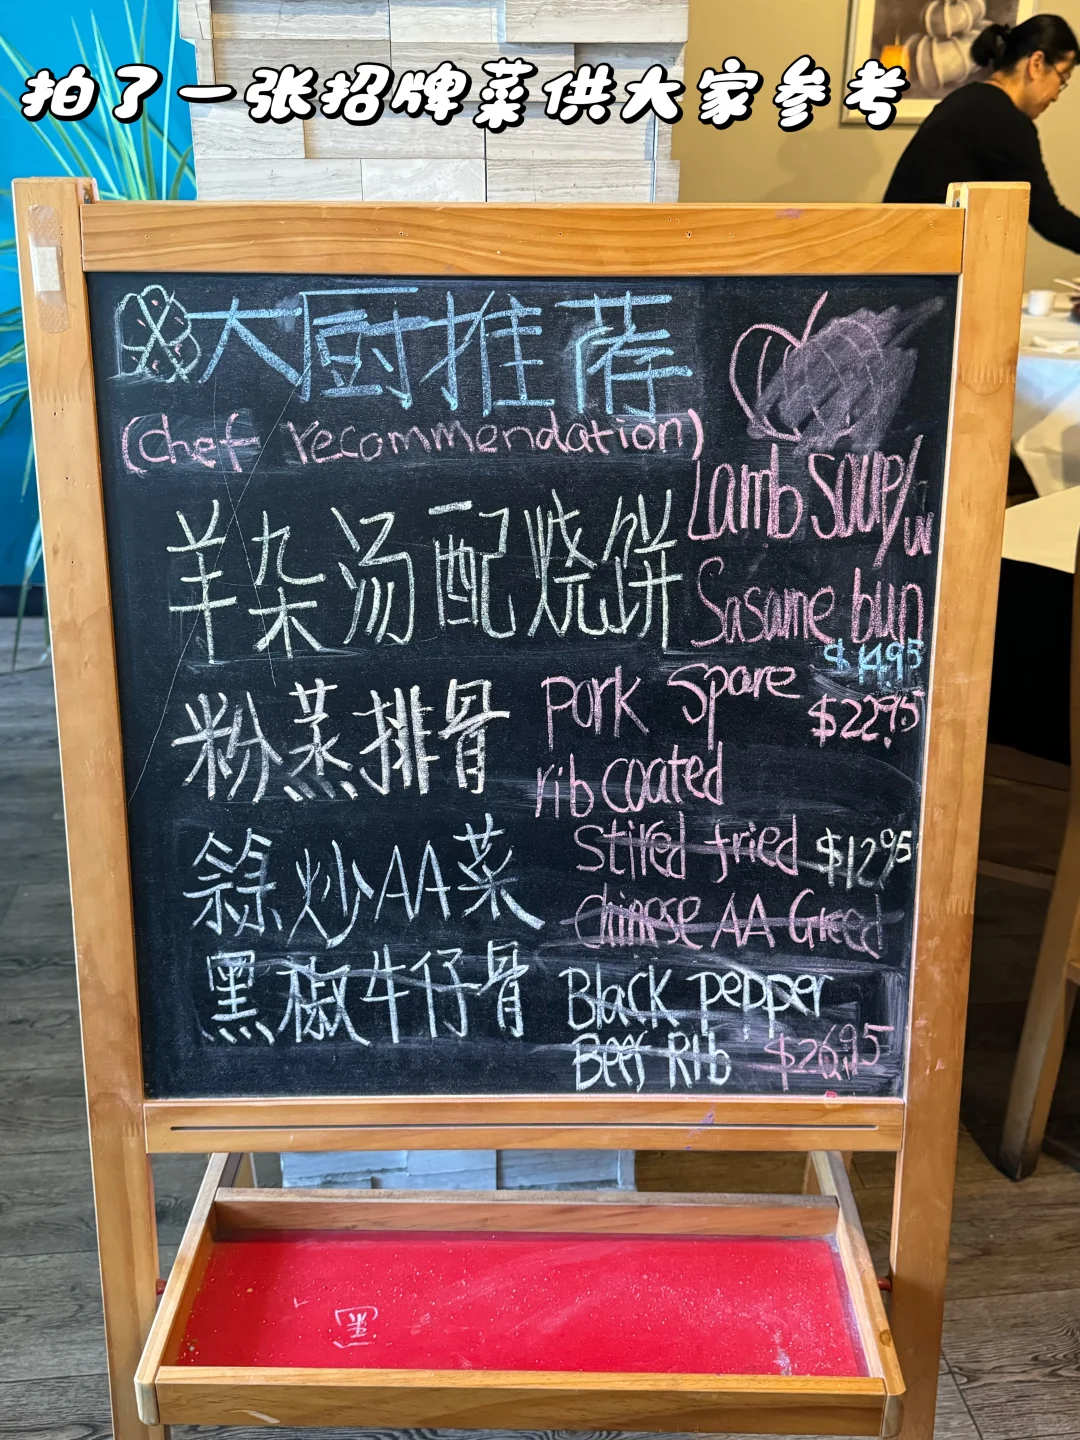 拍了一张招牌菜供大家参考
大厨推荐
(chef recommendation)
羊杂汤配烧饼
Lamb Soup/w
Sasame bun
$14.95
粉蒸排骨
Pork Spare
$22.95
rib coated
蒜炒AA菜
Stired fried $12.95
Chinese AA Greed
黑椒牛仔骨
Black pepper
Beef Rib $26.95